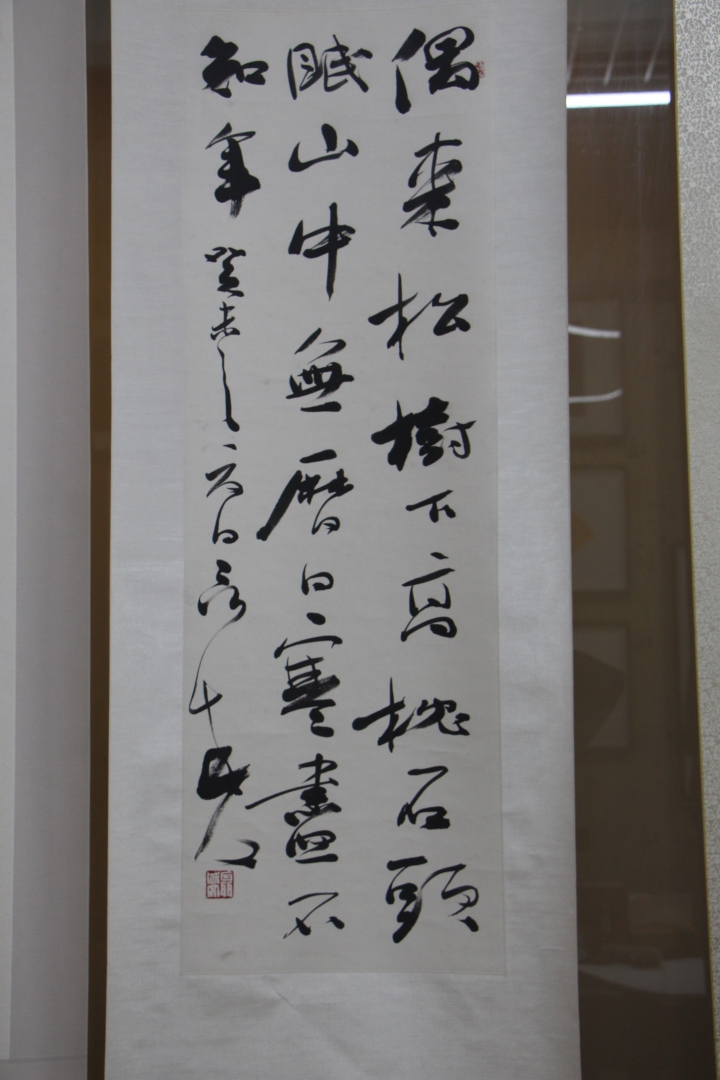 偶來松樹下高枕石頭
眠山中無曆日寒盡不
知年 癸未之